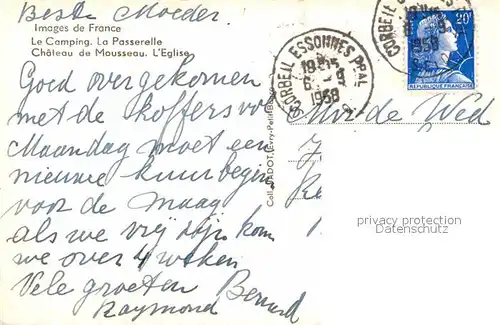 Beste Moeder
Images de France
Le Camping. La Passerelle
Château de Mousseau. L'Eglise
Goed overgekomen
met de koffers vo
Maandag moet een
nieuwe kuur begin
voor de maag
als we vrij zijn kom
we over 4 weken
Vele groeten Bernard
Raymond
CORBEIL ESSONNES PPAL
1958
CORBEIL ESS
1958
20F
REPUBLIQUE FRANÇAISE
de Wed
privacy protection
Datenschutz